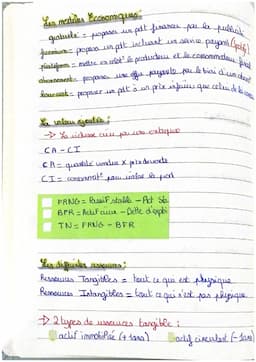 Les modèles Économiques:
gratuité = proposer un pdt financer par la publicité
freemium = propose un pdt incluant un service payant (Spotify)
plateforme = mettre en relat° le producteur et le consommateur final
abonnement = propose une offre payante par le biais d'un abont
low-cost = proposer un pdt à un prix inférieur que celui de la
La valeur ajoutée:
→ La richesse crée par une entreprise
CA - CI
CA = quantité vendue x prix de vente
CI = consommat° pour créer le prod
FRNG = Passif stable - Act Sta
BFR = Actif circu - Dette d'explo
TN = FRNG - BFR
Les différentes ressources:
Ressources Tangibles = tout ce qui est physique
Ressources Intangibles = tout ce qui n'est pas physique
→ 2 types de ressources tangible:
actif immobilisé (+ 1 ans)
actif circulant (- 1 ans)